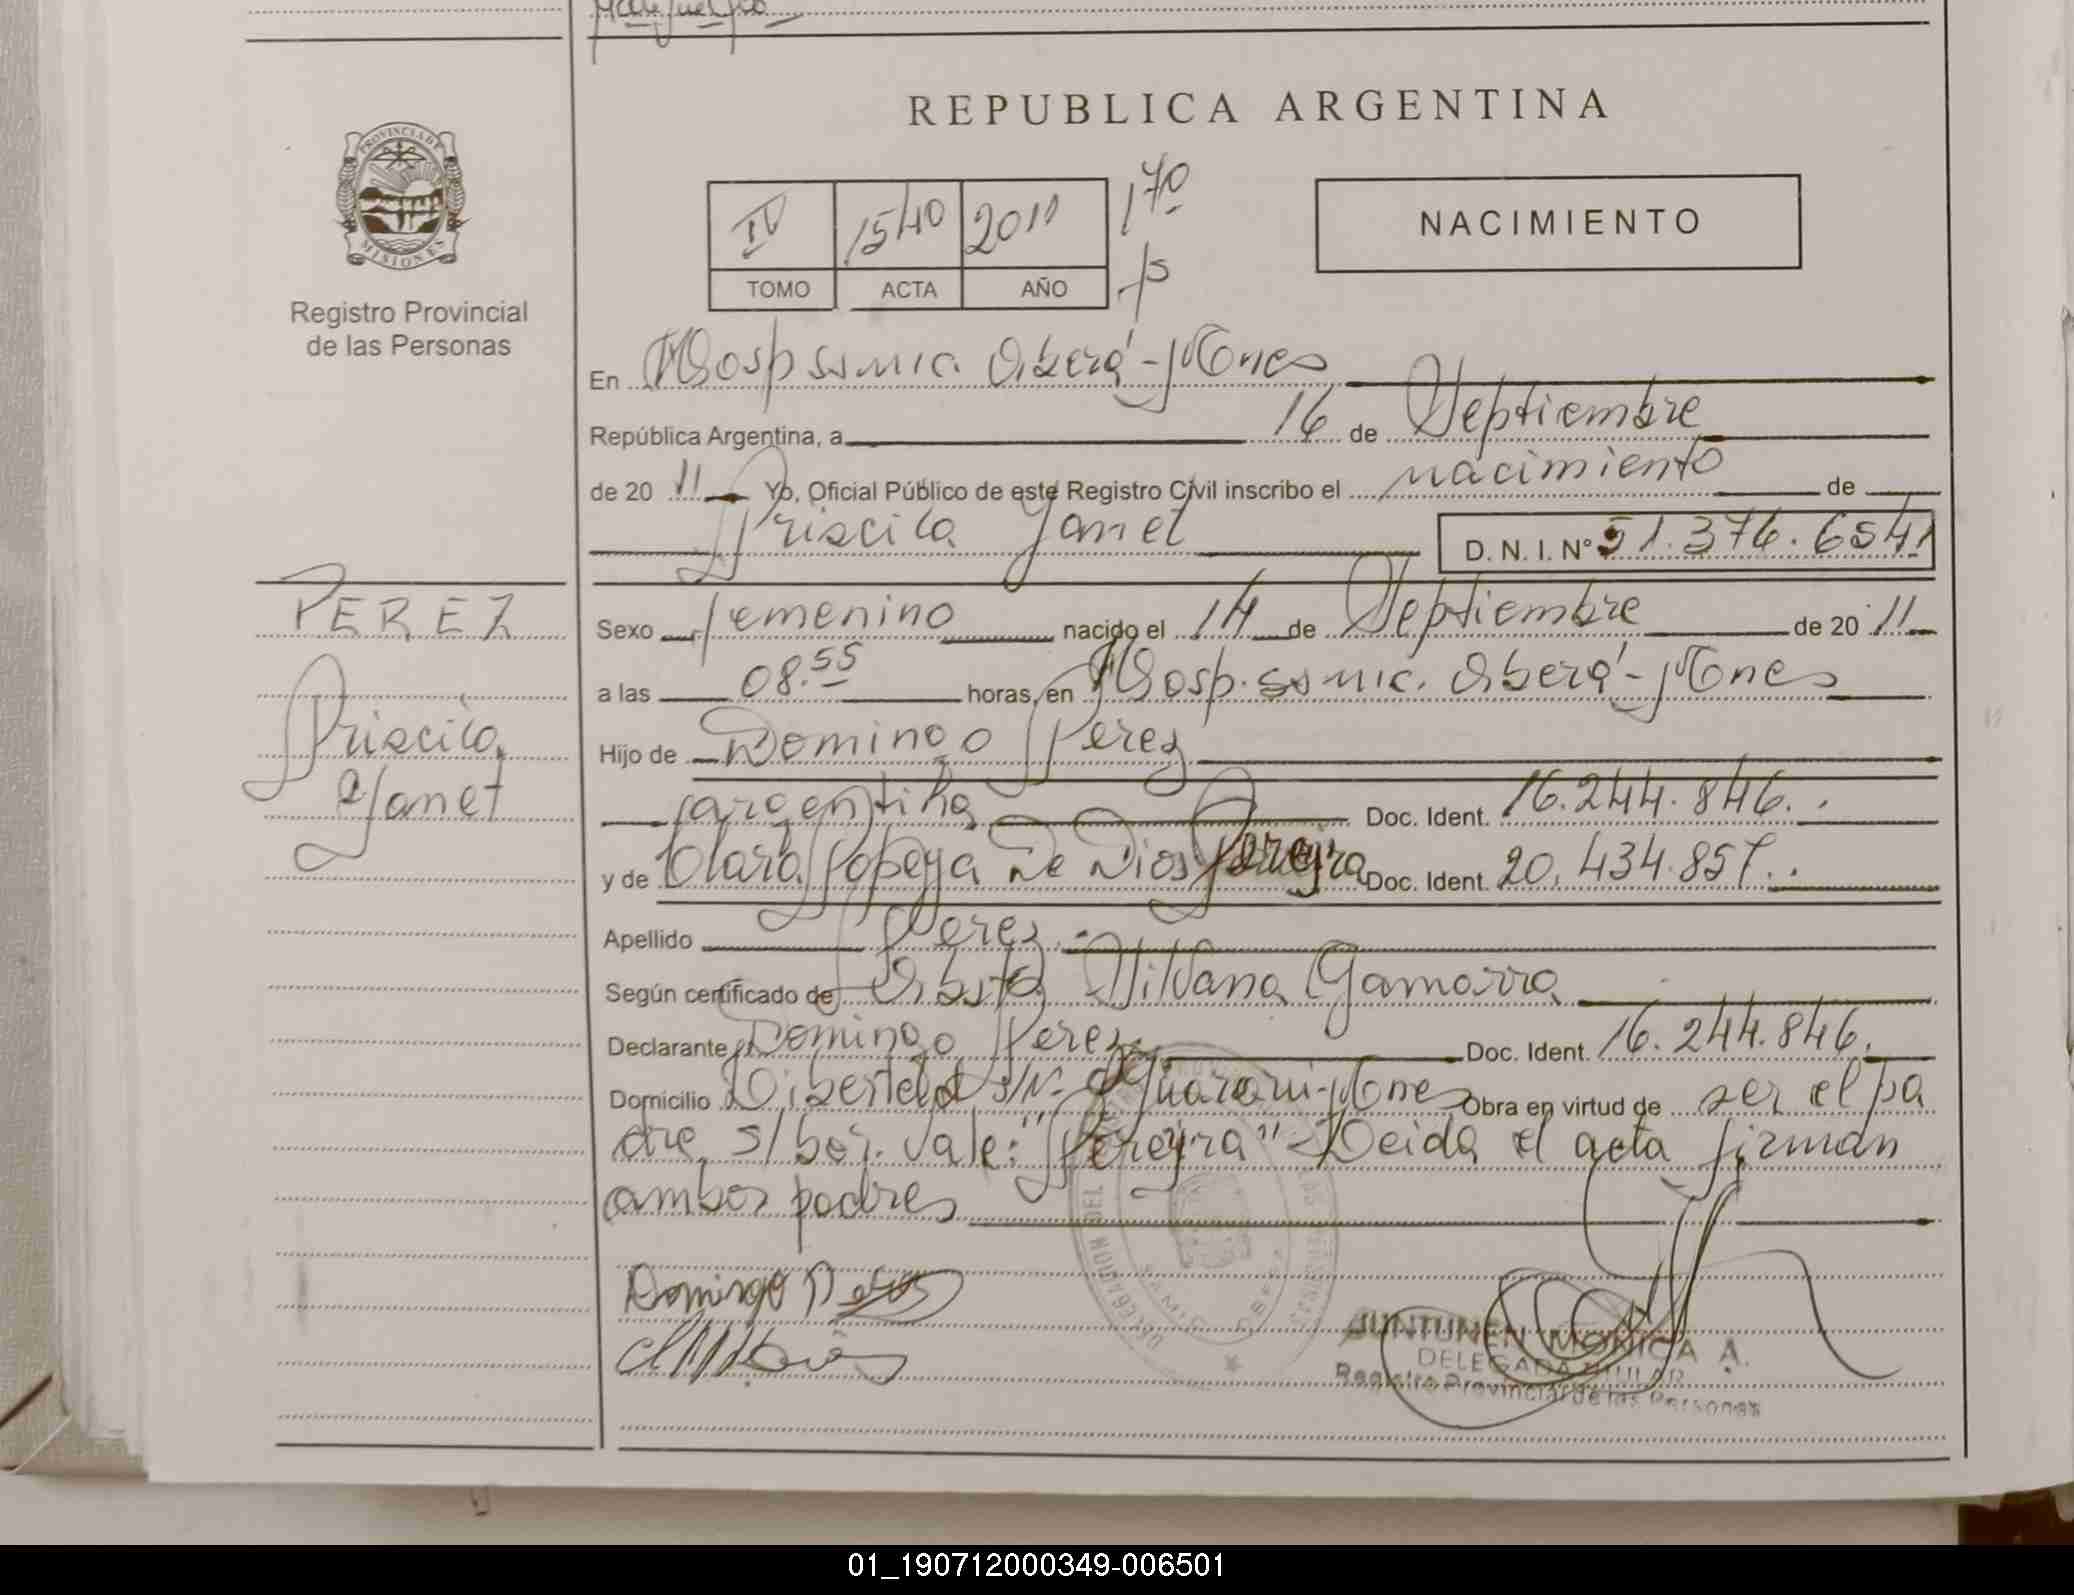 REPUBLICA ARGENTINA
PROVINCIA DE
MISIONES
Registro Provincial
de las Personas
IV 1540 2011 170
TOMO ACTA AÑO
NACIMIENTO
En Hosp ssmic. Oberá-Mnes
República Argentina, a 16 de Septiembre
de 20 11 Yo, Oficial Público de este Registro Civil inscribo el nacimiento de
Priscila Yanet D. N. I. Nº 51.376.654
PEREZ
Priscila
Yanet
Sexo femenino nacido el 14 de Septiembre de 20 11
a las 08.55 horas, en Hosp. ssmic. Oberá-Mnes
Hijo de Domingo Perez
argentina Doc. Ident. 16.244.846.
y de Clara Popeya De Dios Pereyra Doc. Ident. 20.434.857.
Apellido Perez.
Según certificado de Obsta Silvana Gamarra
Declarante Domingo Perez. Doc. Ident. 16.244.846.
Domicilio Libertad s/Nº Guarani-Mnes Obra en virtud de ser el pa
dre. s/bor. vale: "Pereyra" - Leida el acta firman
ambos padres
Domingo Perez
JUNTUNEN MONICA A.
DELEGADA TITULAR
Registro Provincial de las Personas
01_190712000349-006501